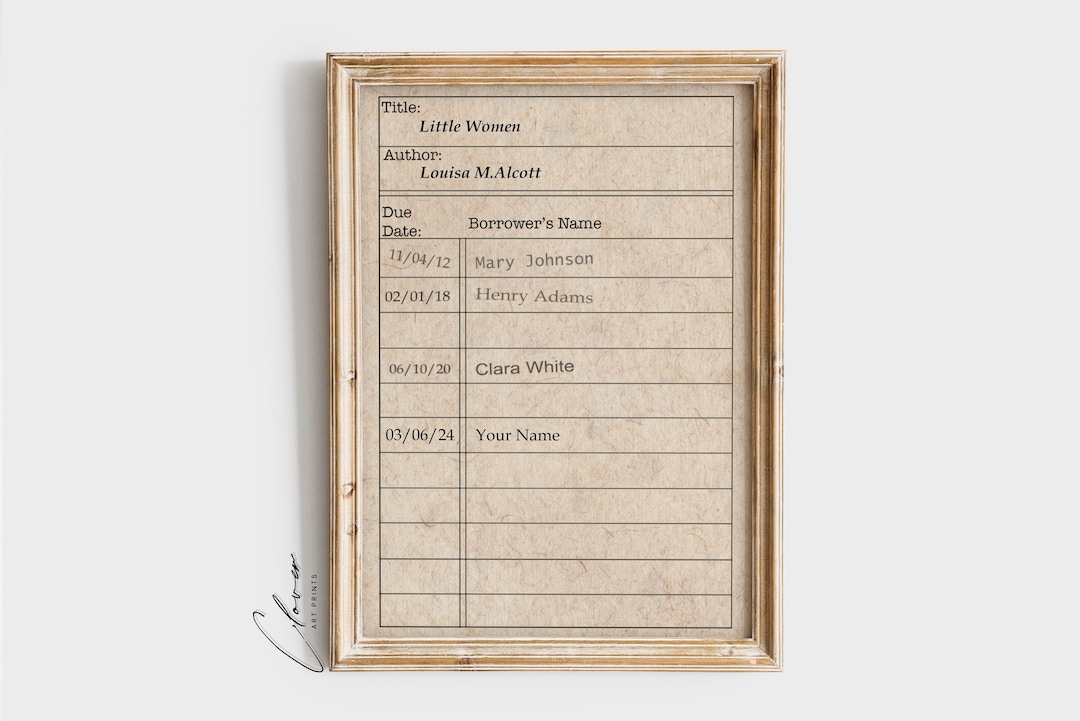 Title:
Little Women
Author:
Louisa M.Alcott
Due
Date:
Borrower's Name
11/04/12 Mary Johnson
02/01/18 Henry Adams
06/10/20 Clara White
03/06/24 Your Name
Clover
ART PRINTS